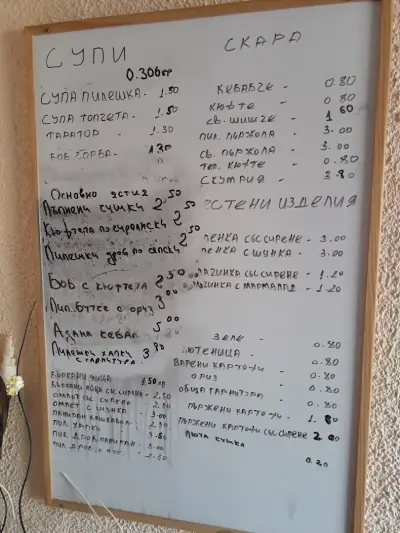 СУПИ
0.300гр
СУПА ПИЛЕШКА - 1.50
СУПА ТОПЧЕТА - 1.50
ТАРАТОР - 1.30
БОБ ЧОРБА - 1.30
Основно ястия
Пълнени чушки 2.50
Кюфтета по чирпански 2.50
Пилешки дроб по селски 2.50
Боб с кюфтета 2.50
Пил. бутче с ориз 3.00
Адана кебап 5.00
Пилешки хапки с гарнитура 3.80
БЪРКАНИ ЯЙЦА 1.50
БЪРКАНИ ЯЙЦА СЪС СИРЕНЕ - 2.50
ОМЛЕТ СЪС СИРЕНЕ - 2.50
ОМЛЕТ С ШУНКА - 3.00
ПАНИРАН КАШКАВАЛ - 3.00
ПИЛ. ХАПКИ - 3.50
ПИЛ. ДРОБ ПАНИРАН - 3.00
ПИЛ. ДРОБ - 2.50
СКАРА
КЕБАБЧЕ - 0.80
КЮФТЕ - 0.80
СВ. ШИШЧЕ - 1.60
ПИЛ. ПЪРЖОЛА - 3.00
СВ. ПЪРЖОЛА - 3.00
ТЕЛ. КЮФТЕ - 0.80
СКУМРИЯ - 2.80
ЕСТЕНИ ИЗДЕЛИЯ
ЛЕНКА СЪС СИРЕНЕ - 3.00
ЛЕНКА С ШУНКА - 3.00
ЛАЧИНКА СЪС СИРЕНЕ - 1.20
ЛАЧИНКА С МАРМАЛАД - 1.20
ЗЕЛЕ - 0.80
ЛЮТЕНИЦА - 0.80
ВАРЕНИ КАРТОФИ - 0.80
ОРИЗ - 0.80
ОБЩА ГАРНИТУРА - 0.80
ПЪРЖЕНИ КАРТОФИ - 1.80
ПЪРЖЕНИ КАРТОФИ СЪС СИРЕНЕ 2.00
ЛЮТА ЧУШКА 0.30